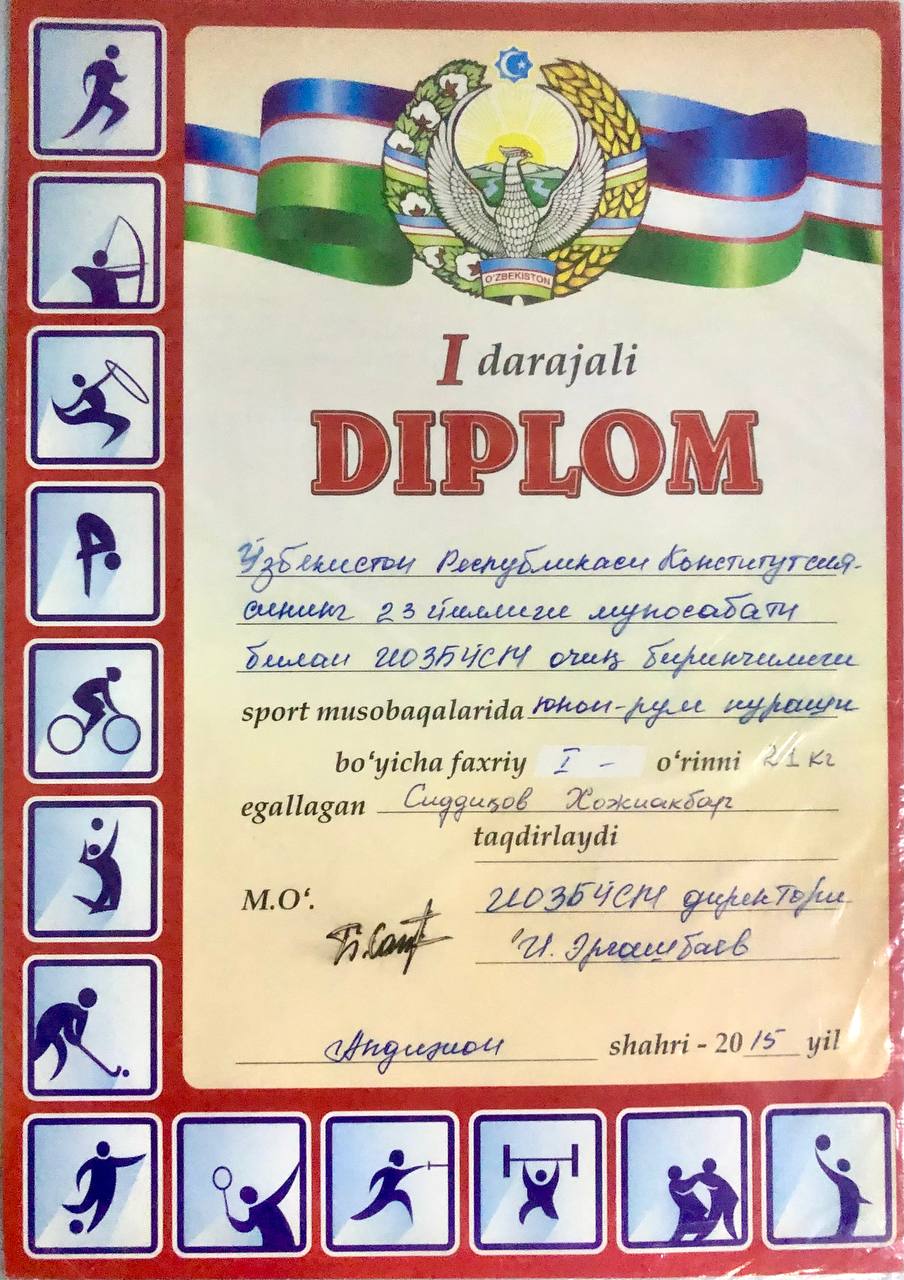 O'ZBEKISTON
I darajali
DIPLOM
Ўзбекистон Республикаси Конститутсия-
сининг 23 йиллиги муносабати
билан ИОЗБЎСМ очиқ биринчилиги
sport musobaqalarida юнон-рум кураши
bo'yicha faxriy I - o'rinni 21 кг
egallagan Сиддиқов Хожиакбар
taqdirlaydi
M.O'. ИОЗБЎСМ директори
И. Эргашбаев
Андижон shahri - 2015 yil